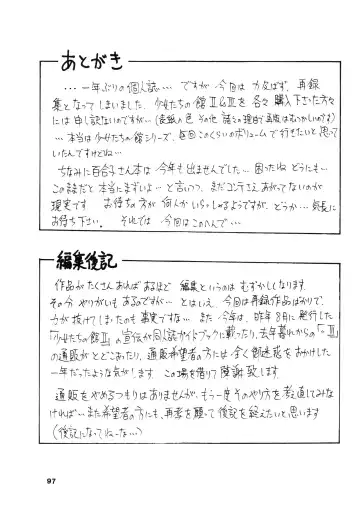 あとがき
・・・一年ぶりの個人誌・・・ですが 今回は 力及ばず、再録
集となってしまいました。少女たちの館Ⅱ&Ⅲを 各々 購入下さった方々
には 申し訳ないのですが・・(表紙の色 その他 諸々の理由で再版はむつかしいのです)
・・・本当は少女たちの館シリーズ、毎回このくらいのボリュームで行きたいと思って
いたんですけどね・・・
ちなみに百合子さん本は 今年も出ませんでした・・・困ったね どうにも・・
この話だと 本当にまずいよ・・と言いつつ、まだコンテさえあがってないのが
現実です お待ちの方が 何人か いらっしゃるようですが、どうか・・・気長に
お待ち下さい。 それでは 今回はこのへんで・・・
編集後記
作品が たくさん あればあるほど 編集というのは むずかしくなります。
その分 やりがいも あるですが・・・とはいえ、今回は再録作品ばかりで、
力が抜けてしまったのも事実ですな・・・ また 今年は、昨年8月に発行した
「少女たちの館Ⅱ」の宣伝が同人誌ガイドブックに載ったり、去年暮れからの「〃Ⅲ」
の通販が とどこおったり、通販希望者の方には 全く御迷惑をおかけした
一年だったような気がします この場を借りて 陳謝致します。
通販をやめるつもりはありませんが、もう一度 そのやり方を 考え直してみな
ければ・・・また希望者の方にも、再考を願って 後記を終えたいと思います
(後記になってねーな〜)
97